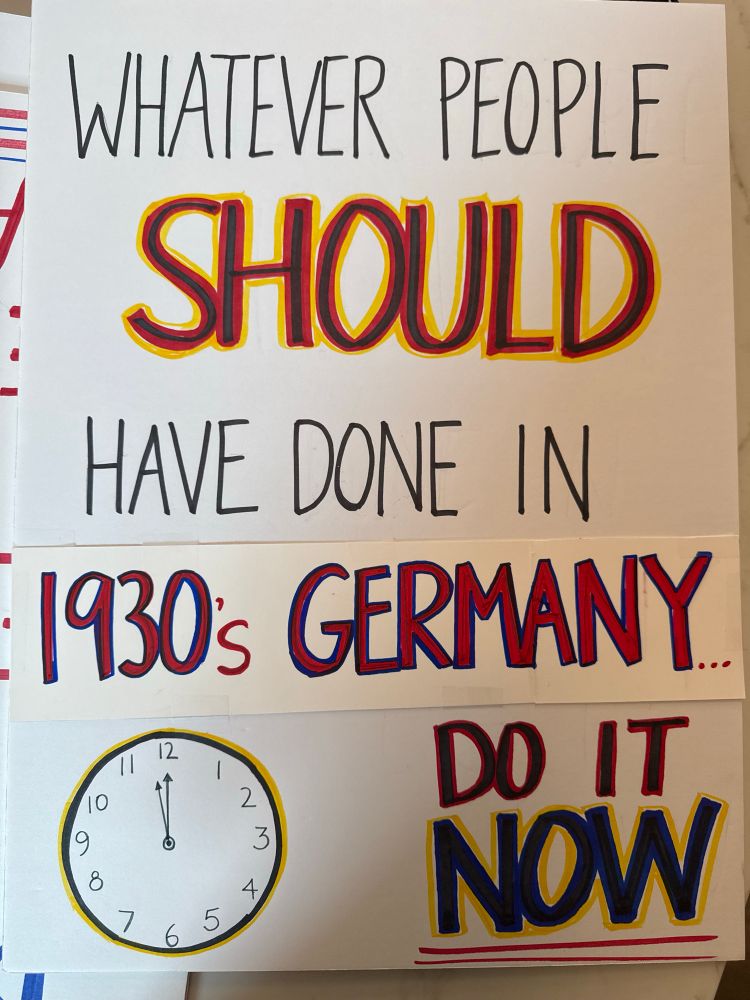 WHATEVER PEOPLE
SHOULD
HAVE DONE IN
1930's GERMANY...
DO IT
NOW
12
11
1
10
2
9
3
8
4
7
5
6